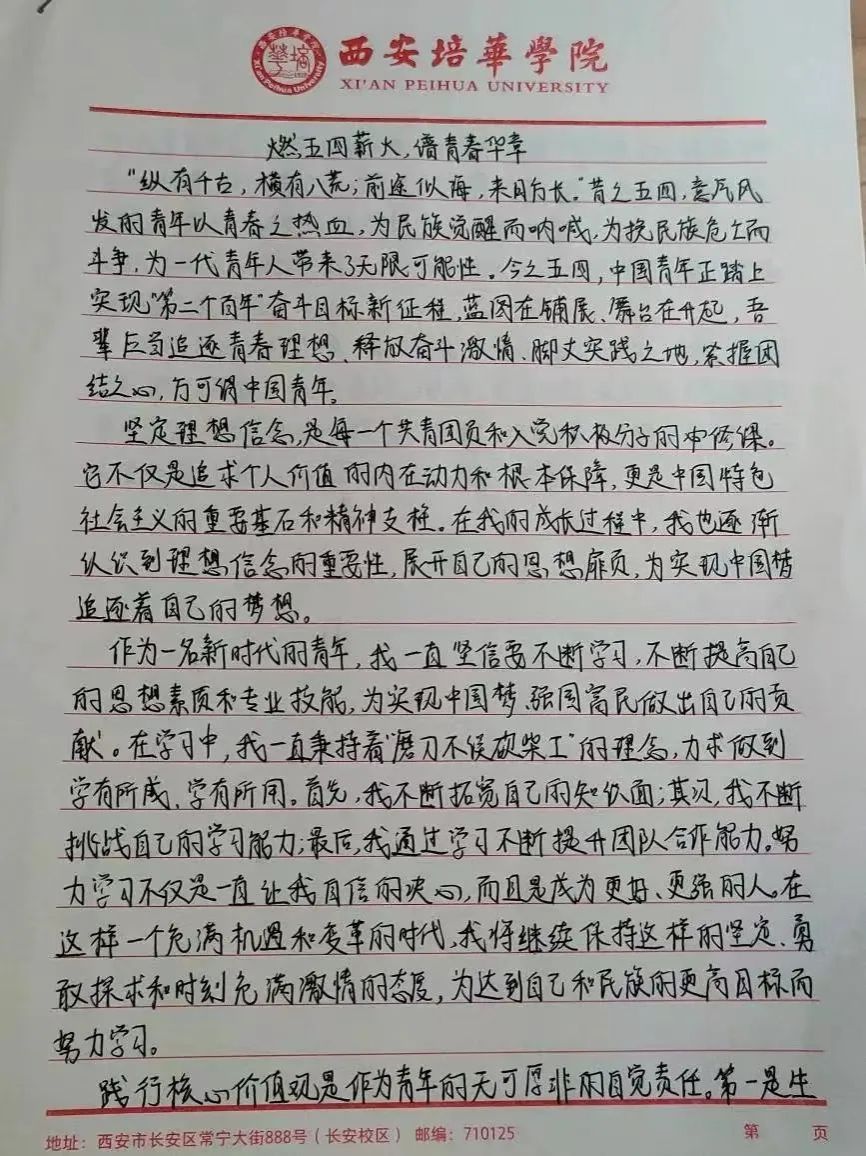 西安培華學院
XI'AN PEIHUA UNIVERSITY
燃五四薪火,谱青春华章
“纵有千古,横有八荒;前途似海,来日方长。”昔之五四,意气风
发的青年以青春之热血,为民族觉醒而呐喊,为挽民族危亡而
斗争,为一代青年人带来了无限可能性。今之五四,中国青年正踏上
实现“第二个百年”奋斗目标新征程,蓝图在铺展、舞台在升起,吾
辈应当追逐青春理想、释放奋斗激情、脚丈实践之地,紧握团
结之心,方可谓中国青年。
坚定理想信念,是每一个共青团员和入党积极分子的本修课。
它不仅是追求个人价值的内在动力和根本保障,更是中国特色
社会主义的重要基石和精神支柱。在我的成长过程中,我也逐渐
认识到理想信念的重要性,展开自己的思想扉页,为实现中国梦
追逐着自己的梦想。
作为一名新时代的青年,我一直坚信要不断学习,不断提高自己
的思想素质和专业技能,为实现中国梦、强国富民做出自己的贡
献。在学习中,我一直秉持着“磨刀不误砍柴工”的理念,力求做到
学有所成、学有所用。首先,我不断拓宽自己的知识面;其次,我不断
挑战自己的学习能力;最后,我通过学习不断提升团队合作能力。努
力学习不仅是一直让我自信的决心,而且是成为更好、更强的人。在
这样一个充满机遇和变革的时代,我将继续保持这样的坚定、勇
敢探求和时刻充满激情的态度,为达到自己和民族的更高目标而
努力学习。
践行核心价值观是作为青年的无可厚非的自觉责任。第一是生
地址:西安市长安区常宁大街888号(长安校区) 邮编:710125 第 页